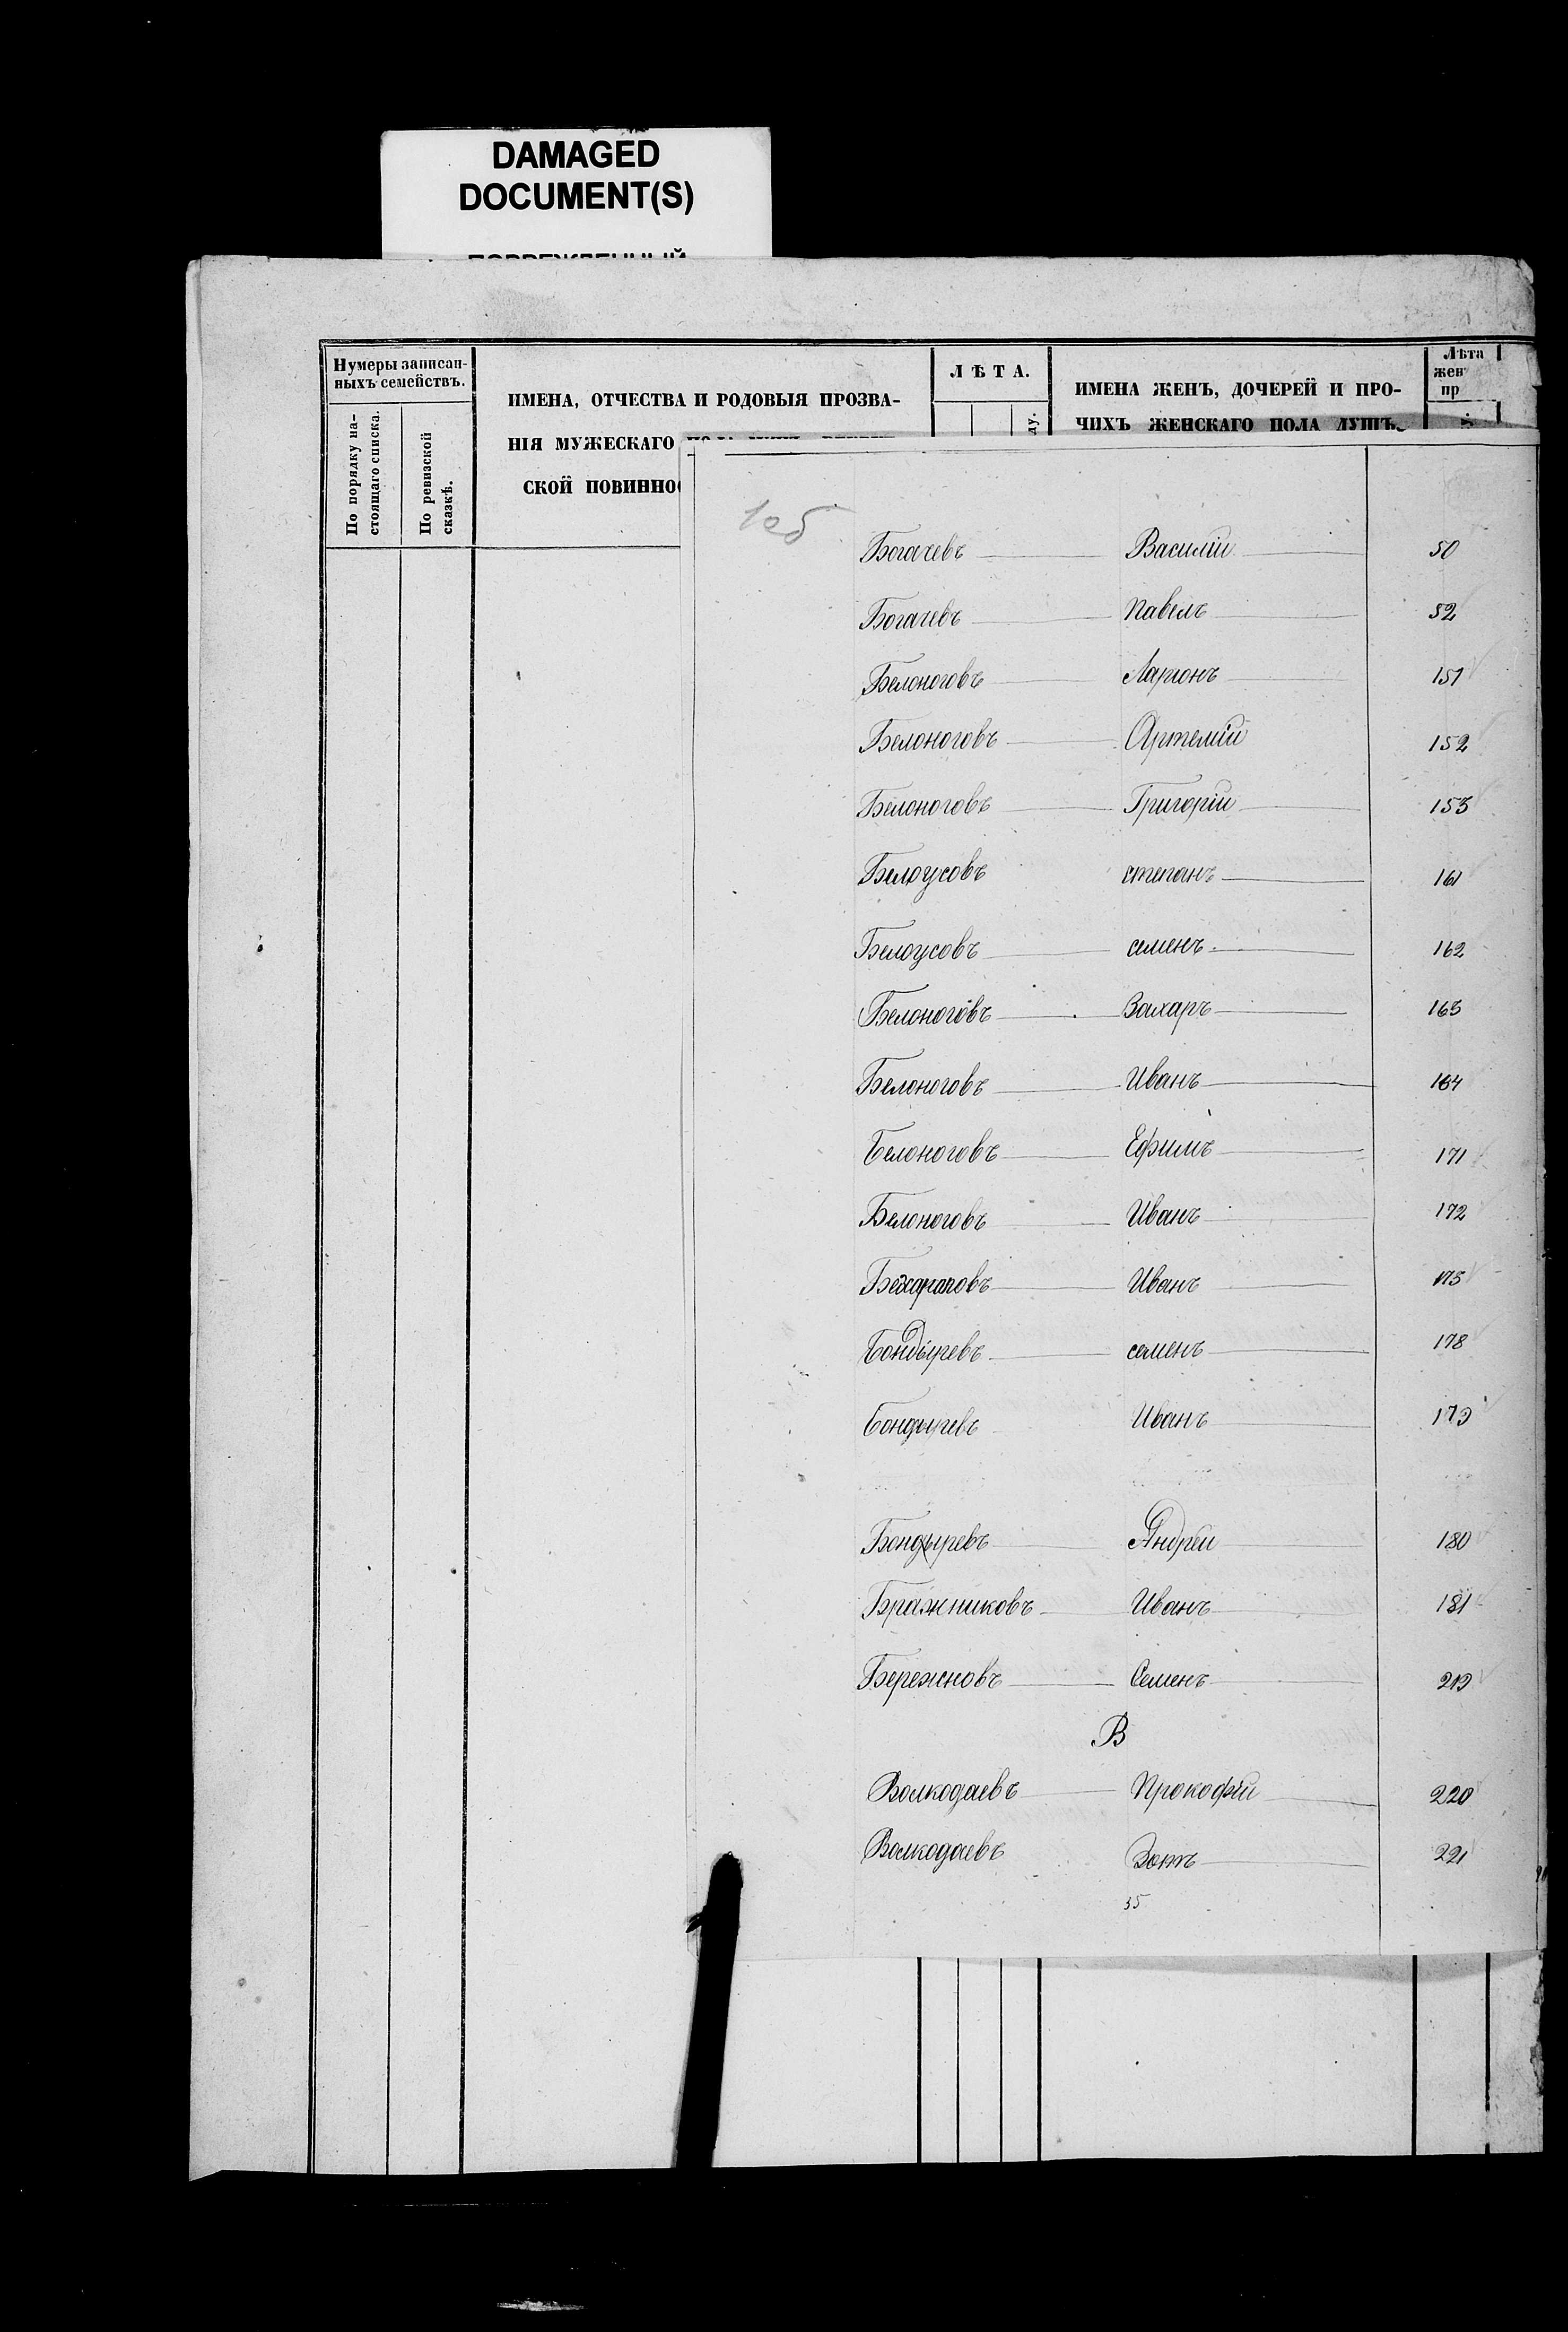 DAMAGED
DOCUMENT(S)
Нумеры записан-
ныхъ семействъ.
По порядку на-
стоящаго списка.
По ревизской
сказкѣ.
ИМЕНА, ОТЧЕСТВА И РОДОВЫЯ ПРОЗВА-
НІЯ МУЖЕСКАГО
СКОЙ ПОВИННОС
ЛѢТА.
ду.
ИМЕНА ЖЕНЪ, ДОЧЕРЕЙ И ПРО-
ЧИХЪ ЖЕНСКАГО ПОЛА ДУШЪ.
Лѣта
жен
пр
Богачевъ Василій 50
Богачевъ Павелъ 52
Белоноговъ Ларионъ 151
Белоноговъ Артемій 152
Белоноговъ Григорій 153
Белоусовъ степанъ 161
Белоусовъ семенъ 162
Белоноговъ Захаръ 163
Белоноговъ Иванъ 164
Белоноговъ Ефимъ 171
Белоноговъ Иванъ 172
Иванъ 175
Бондыревъ семенъ 178
Бондыревъ Иванъ 179
Бондыревъ Андрей 180
Бражниковъ Иванъ 181
Бережновъ Семенъ 219
В
Волкодаевъ Прокофій 220
Волкодаевъ Зотъ 221
35